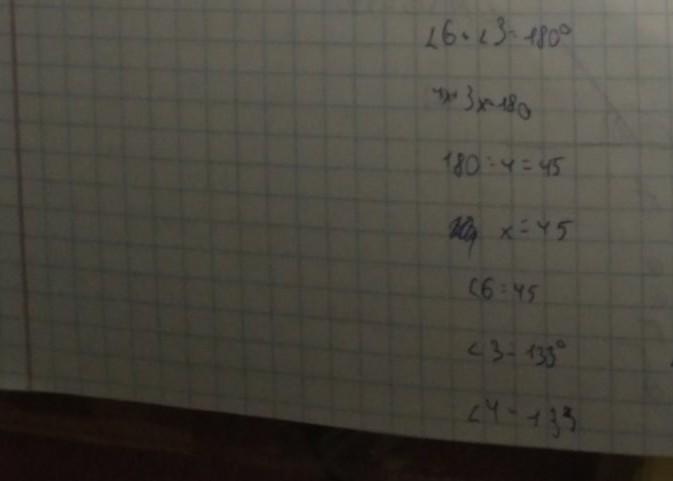 ∠6 + ∠3 = 180°
x + 3x = 180
180 : 4 = 45
x = 45
∠6 = 45
∠3 = 133°
∠4 = 133